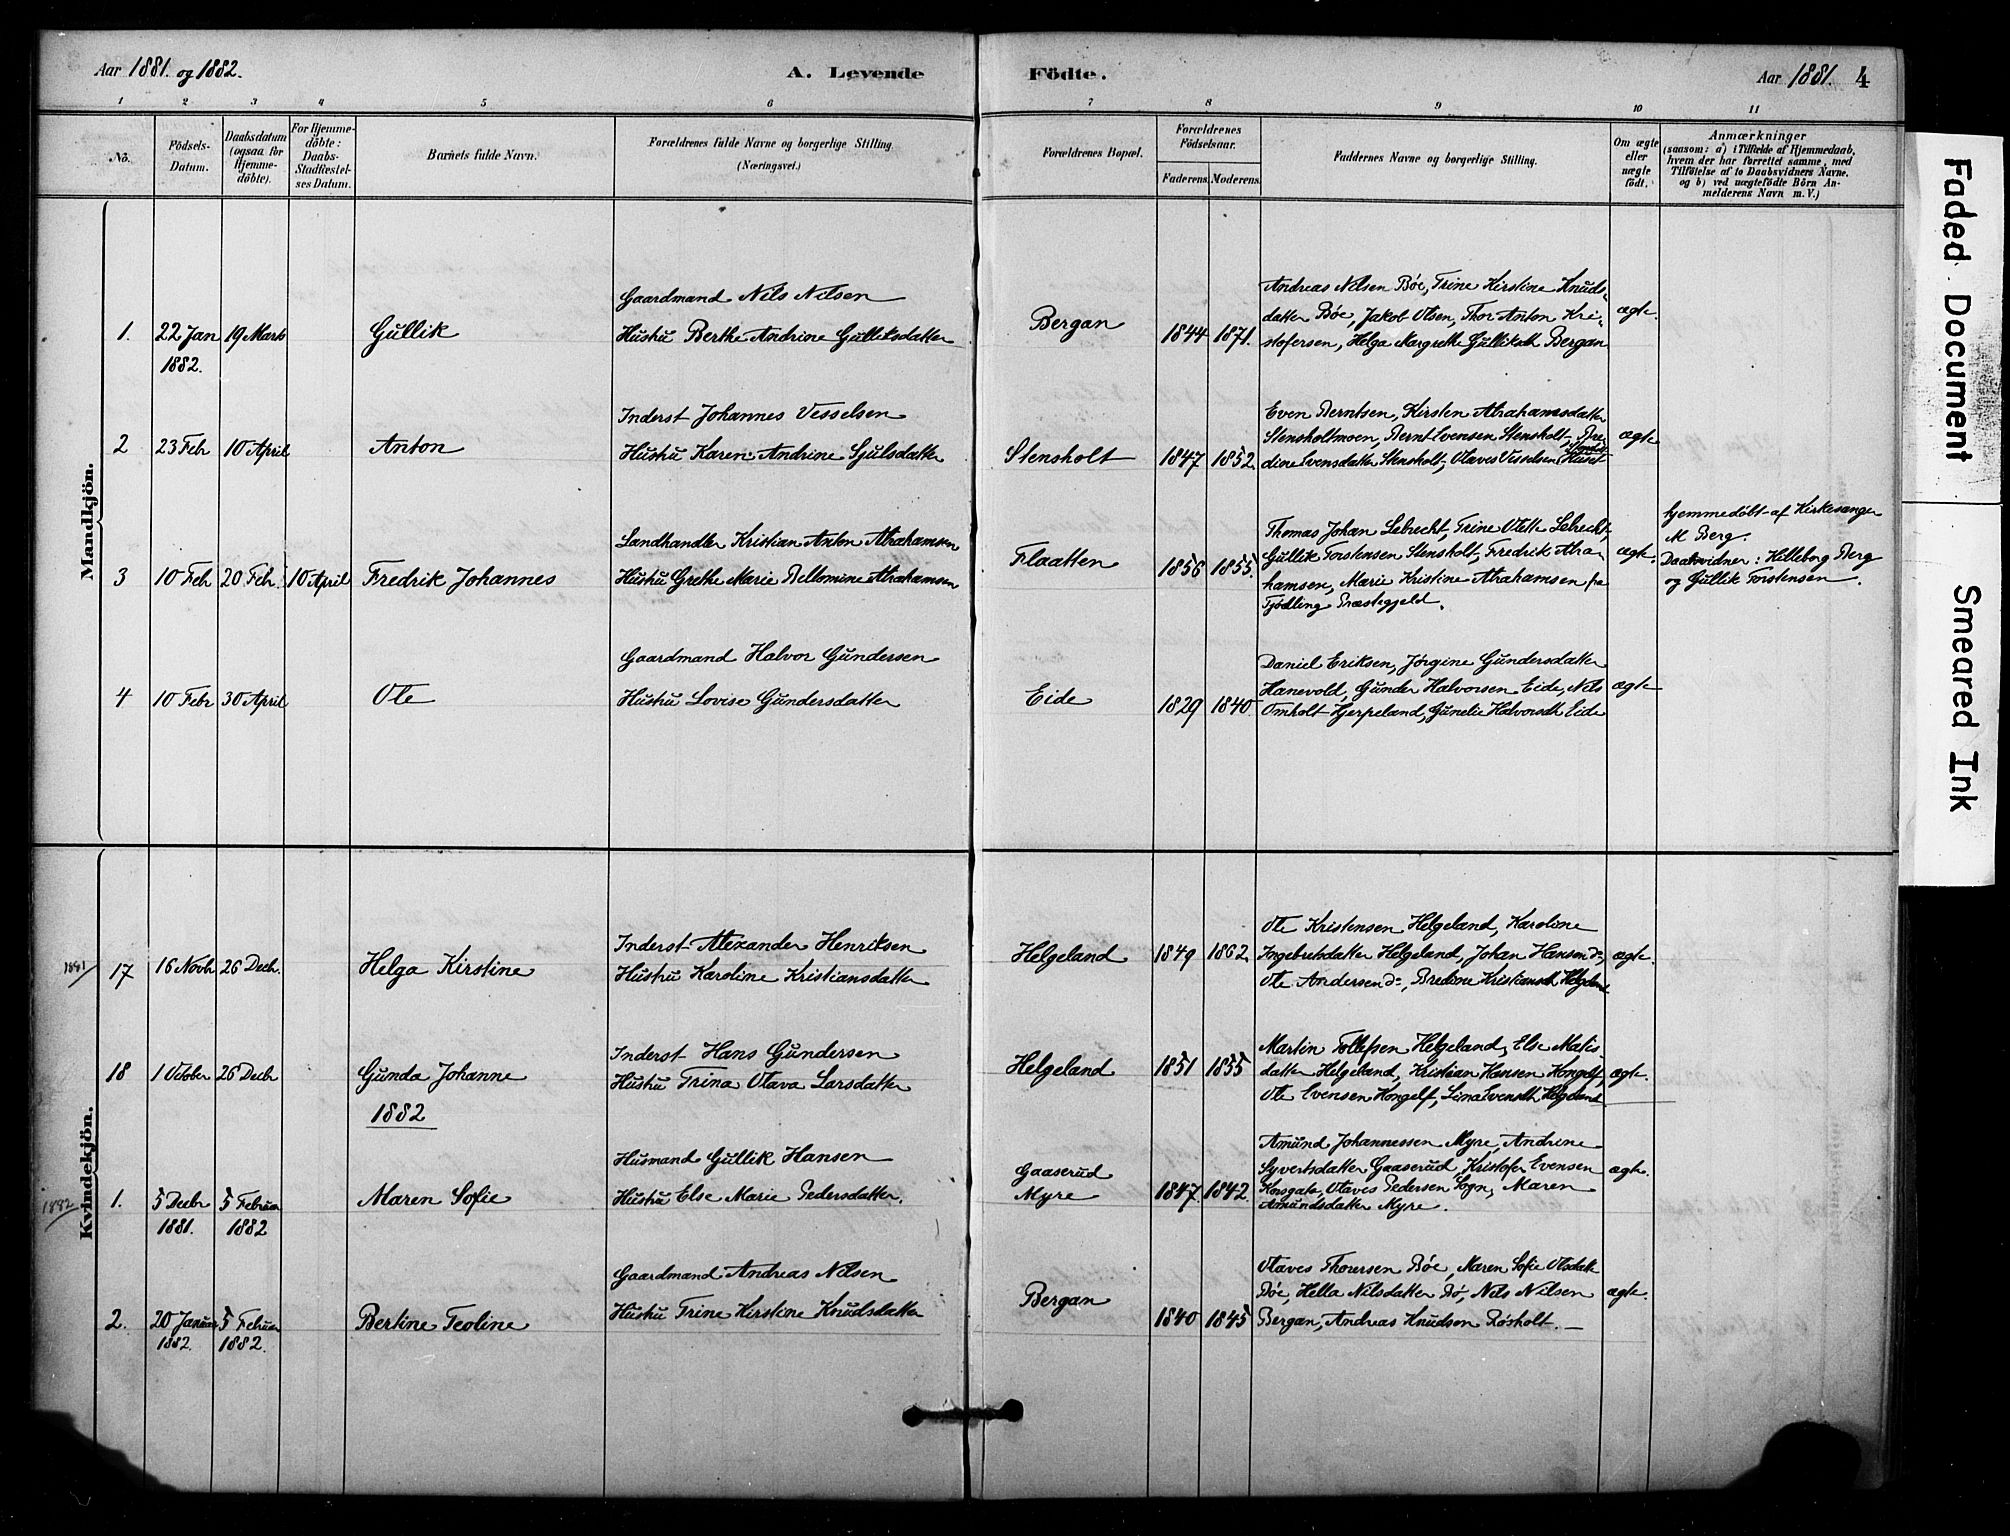 Aar 1881. og 1882.
A. Levende
Födte.
Aar 1881.
4
1 2 3 4 5 6 7 8 9 10 11
No.
Födsels-
Datum.
Daabsdatum
(ogsaa for
Hjemme-
döbte).
For Hjemme-
döbte:
Daabs-
Stadfæstel-
ses Datum.
Barnets fulde Navn.
Forældrenes fulde Navne og borgerlige Stilling
(Næringsvei.)
Forældrenes Bopæl.
Forældrenes
Födselsaar.
Faderens. Moderens.
Faddernes Navne og borgerlige Stilling.
Om ægte
eller
uægte
födt.
Anmærkninger
(saasom: a) i Tilfælde af Hjemmedaab,
hvem der har forrettet samme, med
Tilföielse af to Daabsvidners Navne.
og b) ved uægtefödte Börn An-
melderens Navn m. V.)
Mandkjön.
1. 22 Jan 19 Marts
1882.
Gullik
Gaardmand Nils Nilsen
Hustru Berthe Andrine Gulliksdatter
Bergan
1844 1871.
Andreas Nilsen Bøe, Trine Kirstine Knuds-
datter Bøe, Jakob Olsen, Thor Anton Kri-
stofersen, Helga Margrethe Gulliksdt Bergan
ægte.
2 23 Feb 10 April
Anton
Inderst Johannes Vesselsen
Hustru Karen Andrine Sjulsdatter
Stensholt
1847 1852
Even Berntsen, Kirsten Abrahamsdatter
Stensholtmoen, Bernt Evensen Stensholt, Bre-
dine Evensdatter Stensholt, Olaves Vesselsen Huset
ægte
3 10 Feb 20 Feb. 10 April
Fredrik Johannes
Landhandler Kristian Anton Abrahamsen
Hustru Grethe Marie Bellomine Abrahamsen
Flaatten
1856 1855.
Thomas Johan Lebrecht, Trine Olette Lebrecht,
Gullik Torstensen Stensholt, Fredrik Abra-
hamsen, Marie Kristine Abrahamsen fra
Tjödling Præstegjeld.
ægte.
hjemmedöbt af Kirkesanger
M Berg.
Daabsvidner: Hilleborg Berg
og Gullik Torstensen.
4 10 Febr 30 April
Ole
Gaardmand Halvor Gundersen
Hustru Lovise Gundersdatter
Eide
1829 1840
Daniel Eriksen, Jørgine Gundersdatter
Hanevold, Gunder Halvorsen Eide, Nils
Omholt Hjerpeland, Gunelie Halvorsdt Eide
ægte
Kvindekjön.
1881
17 16 Novbr 26 Decb.
Helga Kirstine
Inderst Alexander Henriksen
Hustru Karoline Kristiansdatter
Helgeland
1849 1862
Ole Kristensen Helgeland, Karoline
Ingebretsdatter Helgeland, Johan Hansen do,
Ole Andersen do, Bredine Kristiansdt Helgeland
ægte.
18 1 Octobr 26 Decbr
Gunda Johanne
1882
Inderst Hans Gundersen
Hustru Trina Olava Larsdatter
Helgeland
1851 1855
Martin Tollefsen Helgeland, Else Matis-
datter Helgeland, Kristian Hansen Kongelf,
Ole Evensen Kongelf, Lina Evensdt Helgeland
ægte.
1882
1. 5 Decbr 5 Februar
1881. 1882
Maren Sofie
Husmand Gullik Hansen
Hustru Else Marie Pedersdatter.
Gaaserud
Myre
1847 1842.
Amund Johannessen Myre, Andrine
Syvertsdatter Gaaserud, Kristofer Evensen
Korsgata, Olaves Pedersen Sogn, Maren
Amundsdatter Myre.
ægte.
2. 20 Januar 5 Februar
1882. 1882.
Bertine Teoline
Gaardmand Andreas Nilsen
Hustru Trine Kirstine Knudsdatter
Bergan
1840 1845
Olaves Thoresen Bøe, Maren Sofie Olsdatt
Bøe, Hella Nilsdatter Bø, Nils Nilsen
Bergan, Andreas Knudsen Røsholt.
ægte.
Faded Document
Smeared Ink